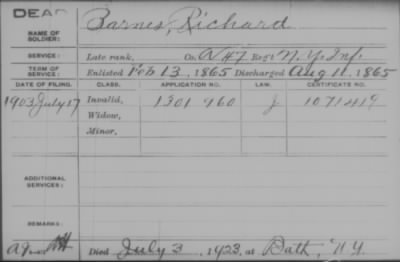 DEAD
NAME OF SOLDIER: Barnes, Richard
SERVICE: Late rank, Co. A 47 Reg't N.Y. Inf.
TERM OF SERVICE: Enlisted Feb 13, 1865 Discharged Aug 11, 1865
DATE OF FILING. CLASS. APPLICATION NO. LAW. CERTIFICATE NO.
1903 July 17 Invalid, 1301 960 J 1071419
Widow,
Minor,
ADDITIONAL SERVICES:
REMARKS:
Died July 3, 1923, at Bath, N Y